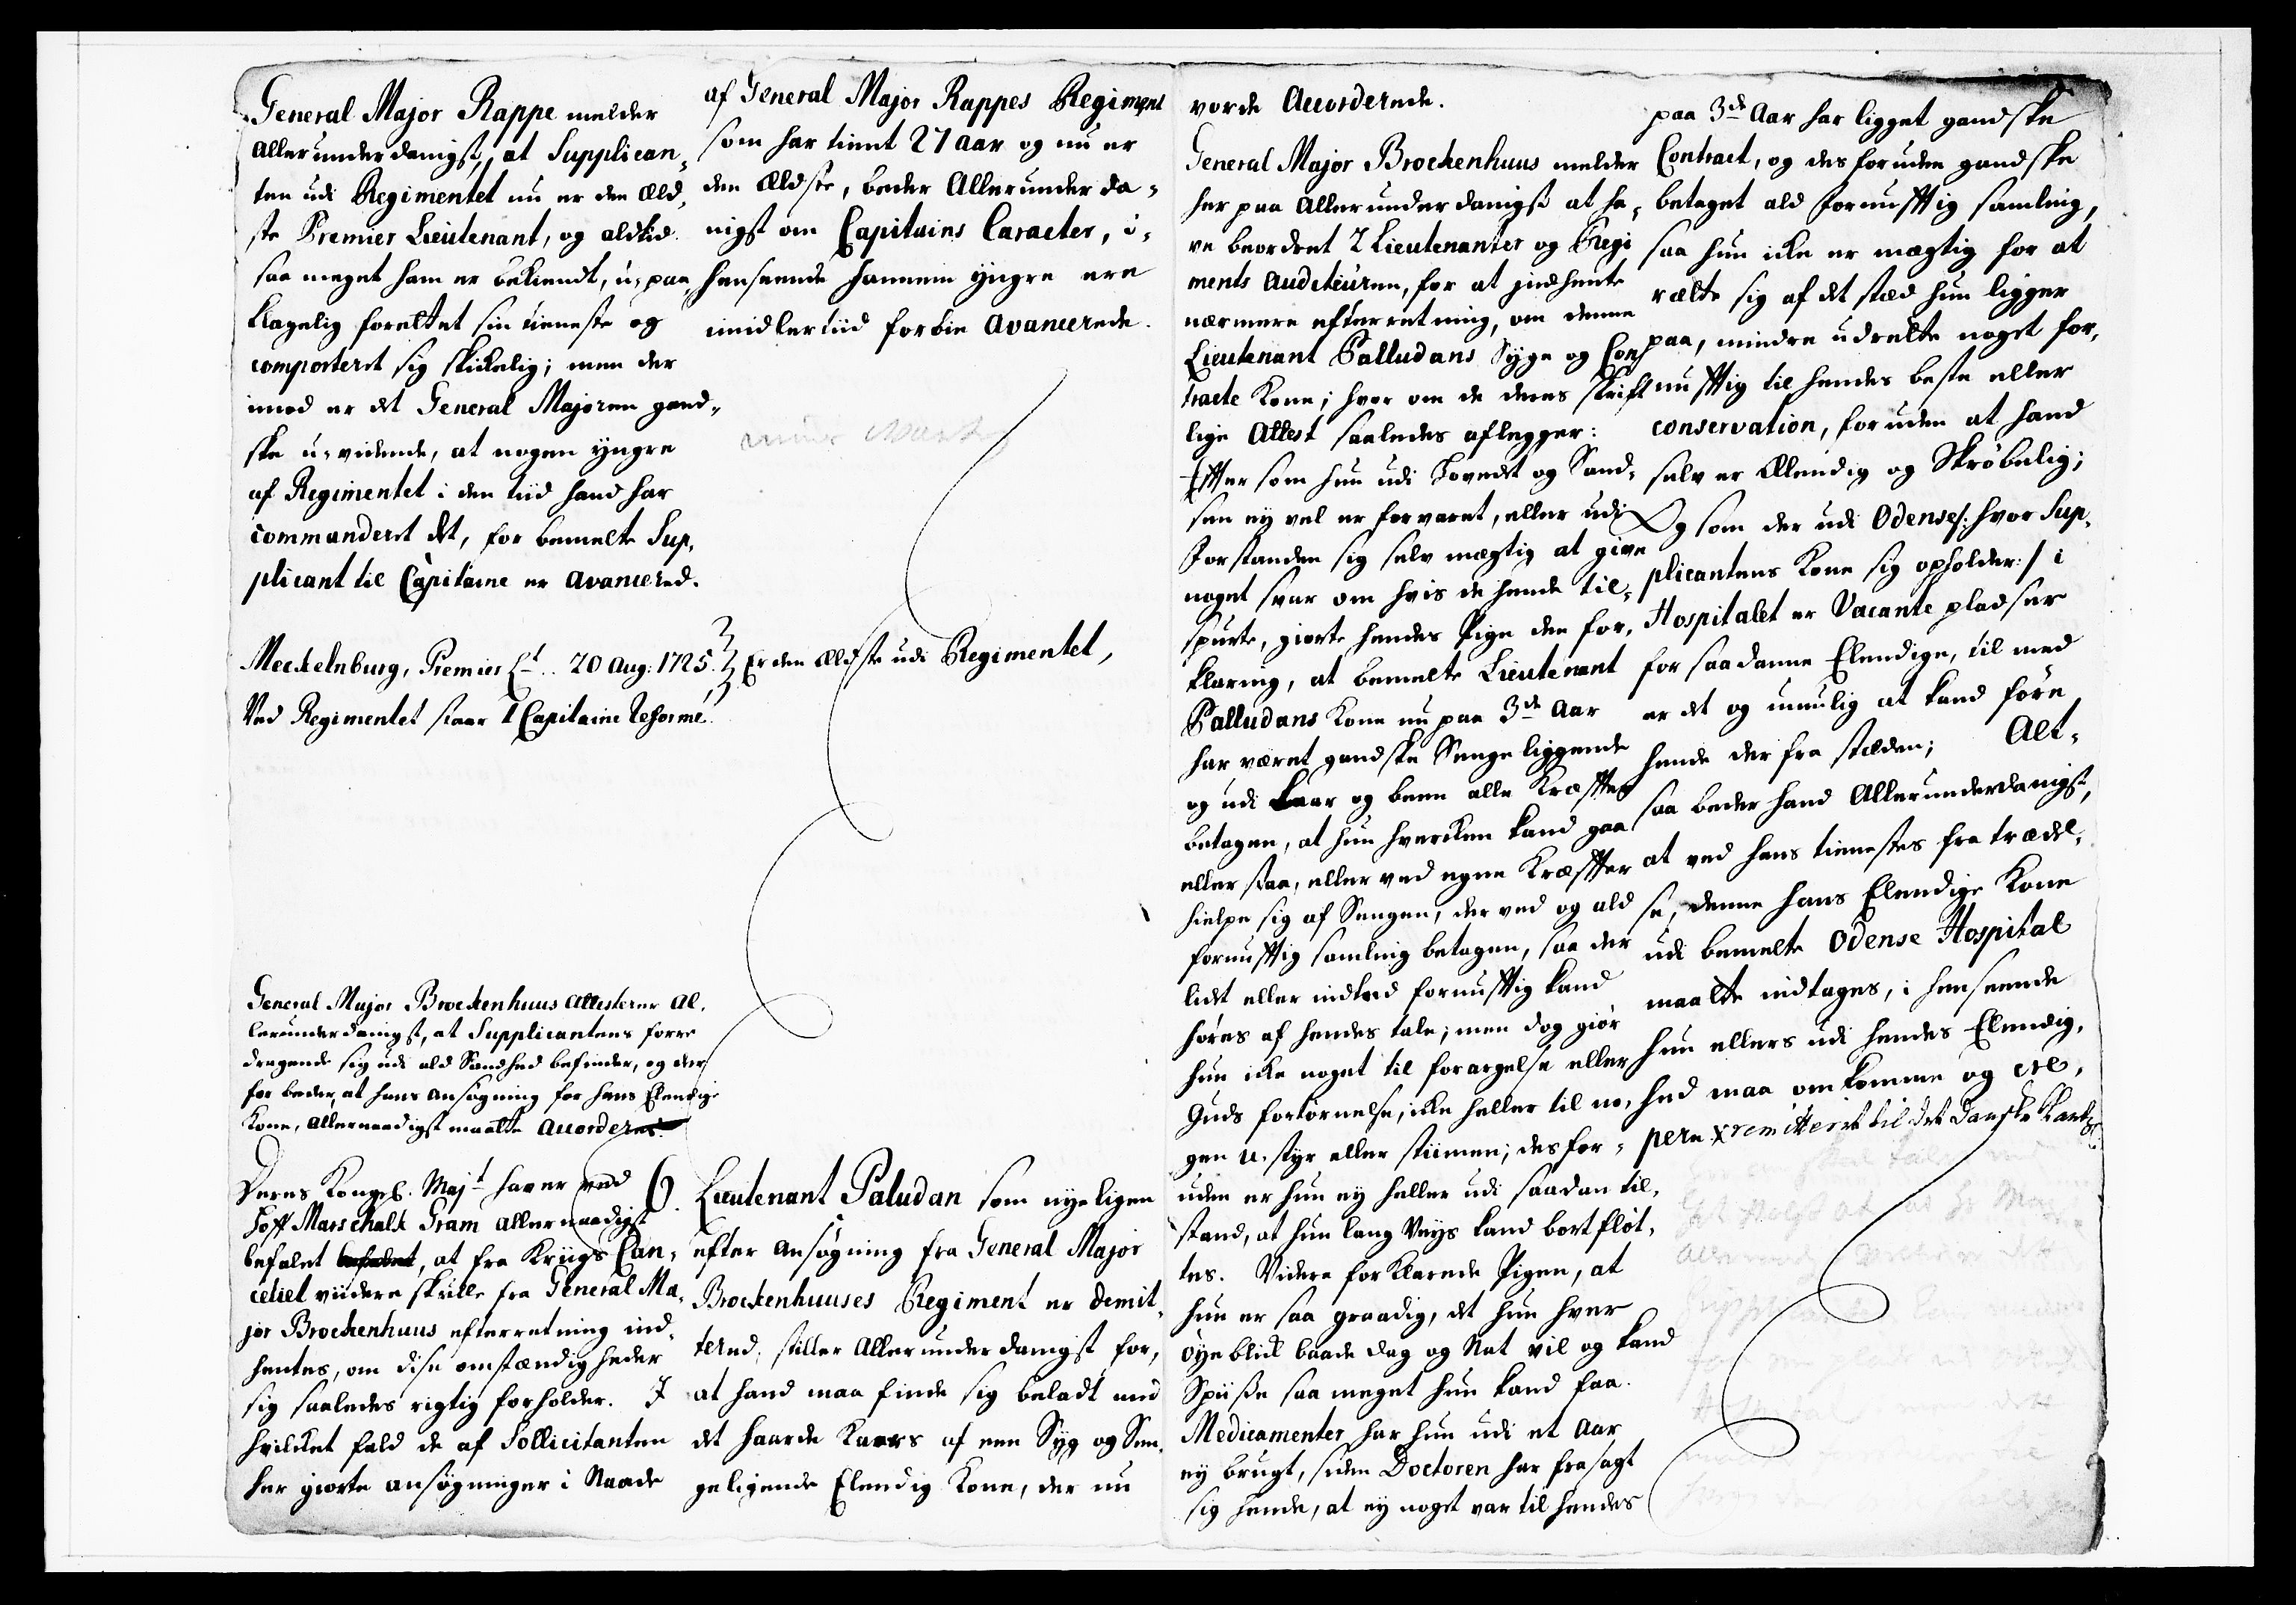 General Major Rappe melder
allerunderdanigst, at Supplican-
ten udi Regimentet nu er den æld-
ste Premier Lieutenant, og altid
saa meget ham er bekiendt, u-paa-
klagelig forrettet sin tieneste og
comporteret sig skikelig; men der
imod er det General Majoren gand-
ske u-vidende, at nogen yngre
af Regimentet i den tiid hand har
commanderet det, for bemelte Sup-
plicant til Capitaine er avancered.
Mecklenburg, Premier Lt. 20 Aug: 1725.
Ved Regimentet staar 1 Capitaine Reformé.
af General Major Rappes Regiment
som har tient 27 aar og nu er
den ældste, beder allerunderda-
nigst om Capitains Caracter, i-
henseende hannem yngre ere
imidlertiid forbie avancerede.
Er den ældste udi Regimentet,
General Major Brockenhuus attesterer al-
lerunderdanigst, at Supplicantens forre
dragende sig udi ald Sandhed befinder, og der
for beder, at hans ansøgning for hans Elendige
Kone, allernaadigst maatte accorderes.
Deres Kongel. Majt haver ved
Hoff Marschalk Gram allernaadigst
befalet befalet, at fra Kriigs Can-
celiet viidere skulle fra General Ma-
jor Brockenhuus efterretning ind-
hentes, om disse omstændigheder
sig saaledes rigtig forholder. I
hvilcket fald de af Sollicitanten
her giorte ansøgninger i Naade
6. Lieutenant Paludan som nyeligen
efter ansøgning fra General Major
Brockenhuuses Regiment er demit-
tered, stiller allerunderdanigst for,
at hand maa finde sig beladt med
det haarde Kaars af een Syg og Sen-
geligende Elendig Kone, der nu
vorde accorderede.
General Major Brockenhuus melder
her paa allerunderdanigst at ha-
ve beordret 2 Lieutenanter og Regi
ments Auditeuren, for at indhente
nærmere efterretning, om denne
Lieutenant Palludans Syge og Con-
tracte Kone; hvor om de deres skrift
lige Attest saaledes aflegger:
Efftersom hun udi Hovedet og Sand-
sen ey vel er forvaret, eller udi
Forstanden sig selv mægtig at give
noget svar om hvis de hende til-
spurte, giorte hendes Pige den for-
klaring, at bemelte Lieutenant
Palludans Kone nu paa 3de Aar
har været gandske Sengeliggende
og udi Laar og been alle Kræffter
betagen, at hun hvercken kand gaa
eller staa, eller ved egne Kræffter
hielpe sig af Sengen, der ved og ald
fornufftig samling betagen, saa der
lidet eller indted fornufftig kand
høres af hendes tale; men dog giør
hun icke noget til forargelse eller
Guds fortørnelse, icke heller til no-
gen u-styr eller stiimen; desfor-
uden er hun ey heller udi saadan til-
stand, at hun lang Veys kand bortfløt-
tes. Videre forklarede Pigen, at
hun er saa graadig, det hun hver
øyeblick baade dag og Nat vil og kand
Spiisse saa meget hun kand faa.
Medicamenter har hun udi et aar
ey brugt, siden Doctoren har frasagt
sig hende, at ey noget var til hendes
paa 3de Aar har ligget gandske
Contract, og desforuden gandske
betaget ald fornufftig samling,
saa hun icke er mægtig for at
rætte sig af det stæd hun ligger
paa, mindre udrætte noget for-
nufftig til hendes beste eller
conservation, foruden at hand
selv er Elendig og Skrøbelig;
Og som der udi Odense /: hvor Sup-
plicantens Kone sig opholder :/ i
Hospitalet er Vacante pladser
for saadanne Elendige, til med
er det og umulig at kand føre
hende der fra stæden; Alt-
saa beder hand allerunderdanigst,
at ved hans tienestes fratrædel-
se, denne hans Elendige Kone
udi bemelte Odense Hospital
maatte indtages, i henseende
hun ellers udi hendes Elendig-
hed maa omkomme og cre-
pere. x remitteret til det Danske Cantzl.